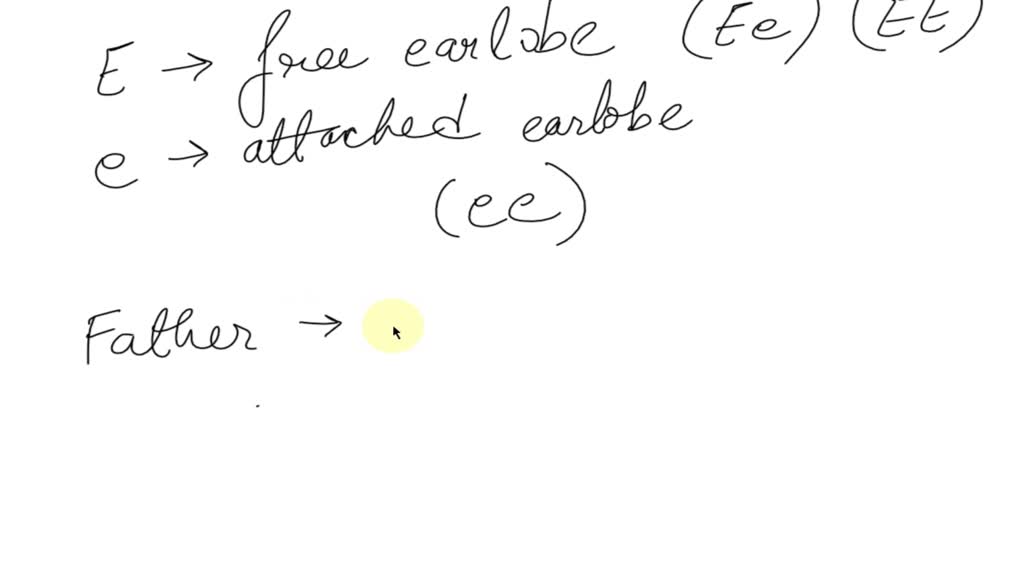 E → free earlobe (Ee) (EE)
e → attached earlobe
(ee)
Father →